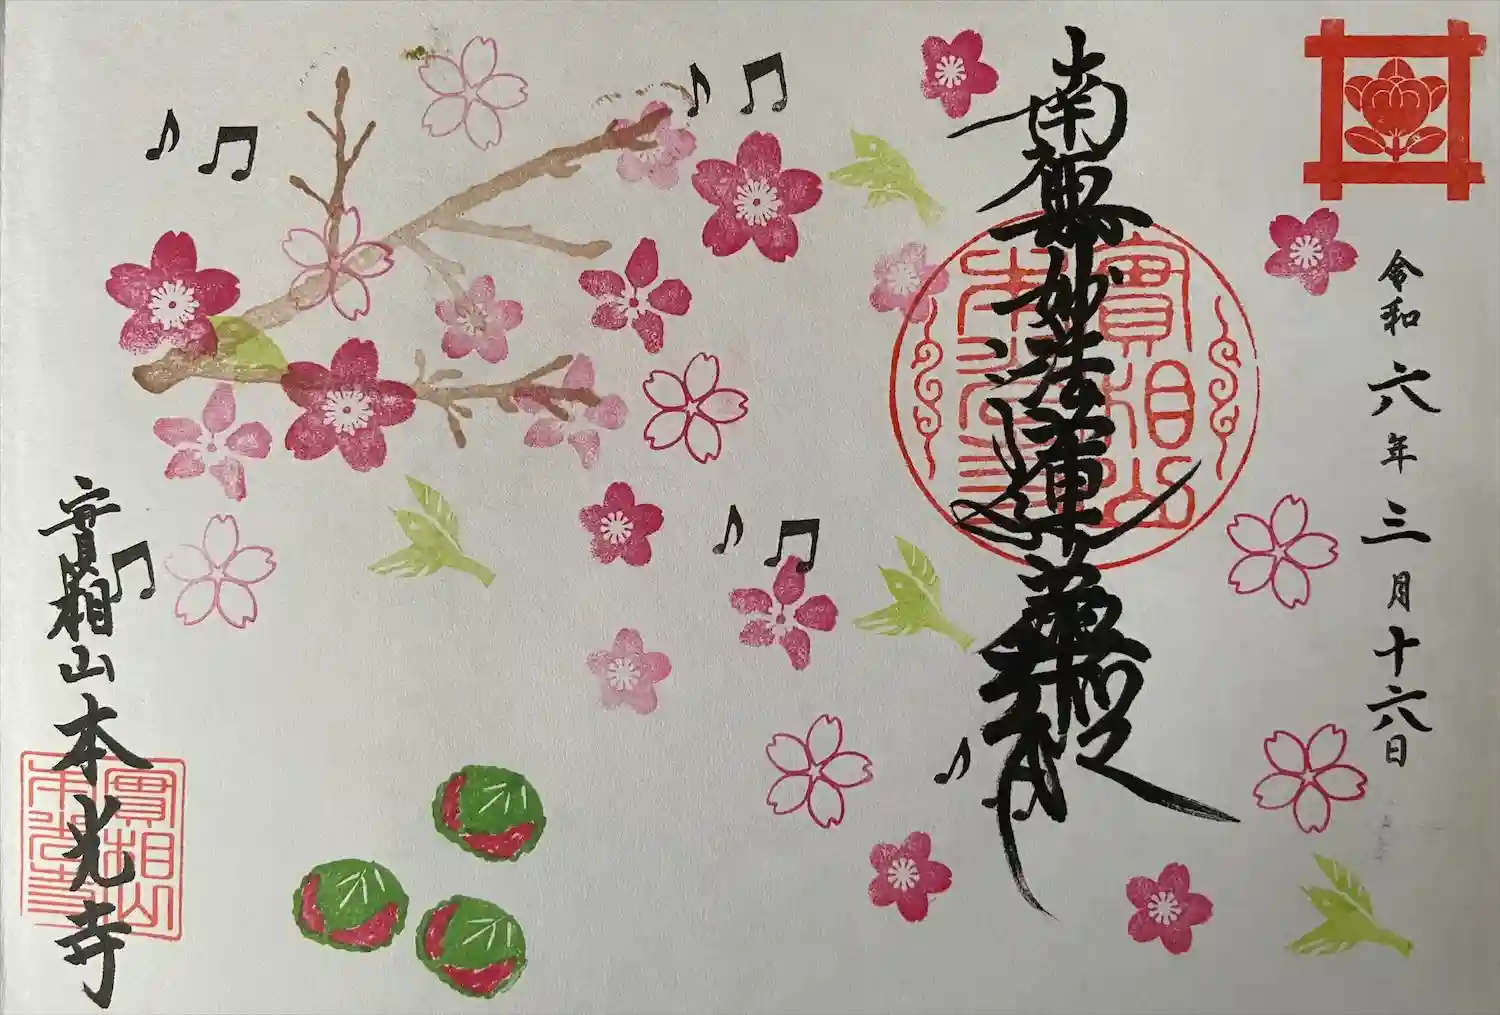 令和六年三月十六日
南無妙法蓮華経
實相山
本光寺
實相山本光寺
實相山
本光寺